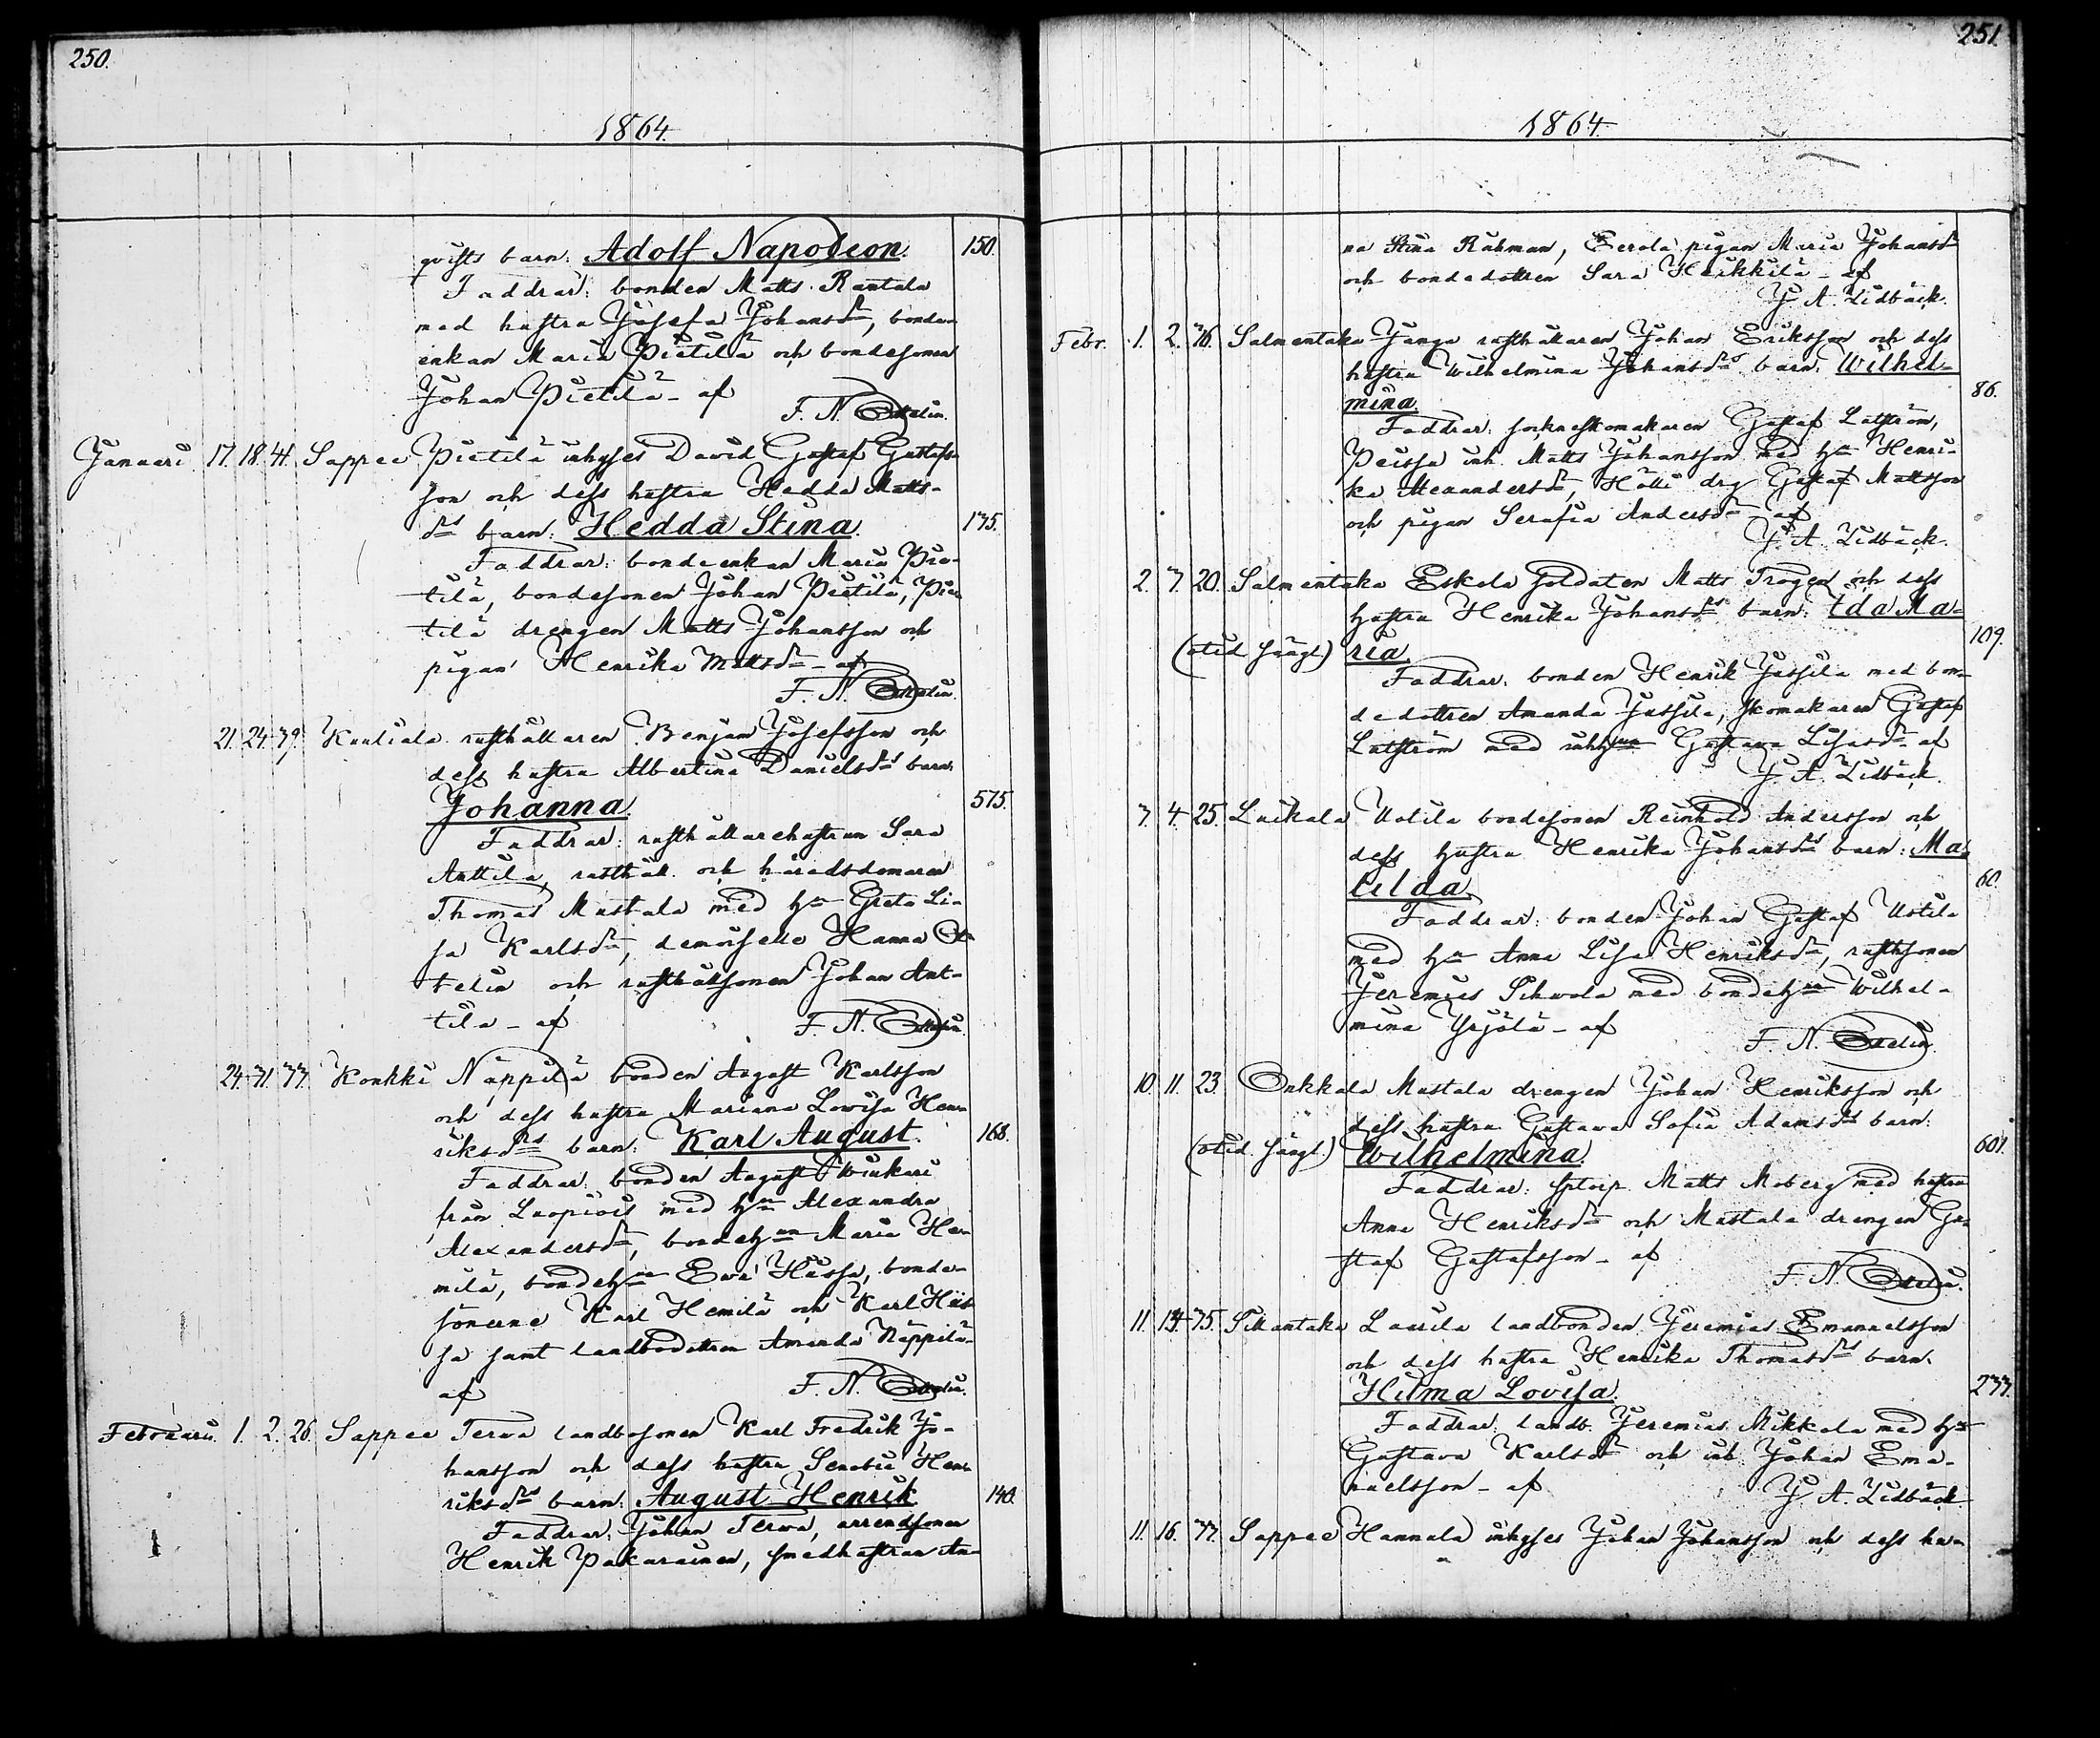 250.
1864.
qvists barn: Adolf Napoleon. 150.
Faddrar: bonden Matts Rantala
med hustru Josefa Johansdr, bonde-
enkan Maria Pietilä och bondesonen
Johan Pietilä - af
F. N. Ottelin.
Januari 17. 18. 41. Sappee Pietilä inhyses David Gustaf Gustafs-
son och dess hustru Hedda Matts-
drs barn: Hedda Stina. 175.
Faddrar: bondeenkan Maria Pie-
tilä, bondesonen Johan Pietilä, Pie-
tilä drengen Matts Johansson och
pigan Henrika Mattsdr - af
F. N. Ottelin.
21. 24. 39. Kantiala rusthållaren Benjam Josefsson och
dess hustru Albertina Danielsdrs barn:
Johanna. 575.
Faddrar: rusthållarehustrun Sara
Anttila, rusthåll. och häradsdomaren
Thomas Mustala med hu Greta Li-
sa Karlsdr, demoiselle Hanna Ot-
telin och rusthållsonen Johan Ant-
tila - af F. N. Ottelin.
24. 31. 33. Konkki Näppilä bonden August Karlsson
och dess hustru Mariana Lovisa Hen-
riksdrs barn: Karl August. 168.
Faddrar: bonden August Winkari
från Luopiois med hu Alexandra
Alexandersdr, bondehun Maria He-
milä, bondehun Eva Hiissa, bonde-
sönerne Karl Hemilä och Karl Hiis-
sa samt landbodottren Amanda Näppilä -
af F. N. Ottelin.
Februari. 1. 2. 26. Sappee Terva landbosonen Karl Fredrik Jo-
hansson och dess hustru Senobia Hen-
riksdrs barn: August Henrik 140.
Faddrar: Johan Terva, arrendsonen
Henrik Pakarainen, smedhustrun An-
251.
1864.
na Stina Råhman, Eerola pigan Maria Johansdr
och bondedottren Sara Heikkilä - af
J. A. Lidbäck.
Febr. 1. 2. 36. Salmentaka Junga rusthållaren Johan Eriksson och dess
hustru Wilhelmina Johansdrs barn: Wilhel-
mina. 86.
Faddrar: sockneskomakaren Gustaf Latström,
Peussa inh. Matts Johansson med hu Henri-
ka Alexandersdr, Hölli drg Gustaf Mattsson
och pigan Serafia Andersdr - af
J. A. Lidbäck.
2. 7. 20. Salmentaka Eskola soldaten Matts Trogen och dess
hustru Henrika Johansdrs barn: Ida Ma-
(otid. häigt.) ria. 109.
Faddrar: bonden Henrik Jussila med bon-
dedottren Amanda Jussila, skomakaren Gustaf
Latström med inhhun Gustava Lisasdr - af
J. A. Lidbäck
3. 4. 25. Luikala Uotila bondesonen Reinhold Andersson och
dess hustru Henrika Johansdrs barn: Ma-
tilda. 60.
Faddrar: bonden Johan Gustaf Uotila
med hu Anna Lisa Henriksdr, rusthsonen
Jeremias Sihvola med bondehun Wilhel-
mina Yrjölä - af
F. N. Ottelin.
10. 11. 23. Onkkala Mustala drengen Johan Henriksson och
dess hustru Gustava Sofia Adamsdrs barn:
Wilhelmina. 601.
Faddrar: sptorp. Matts Moberg med hustru
Anna Henriksdr och Mustala drengen Gu-
staf Gustafsson - af
F. N. Ottelin.
11. 14. 35. Sillantaka Laurila landbonden Jeremias Emanuelsson
och dess hustru Henrika Thomasdrs barn:
Hilma Lovisa. 233.
Faddrar: landb. Jeremias Mikkola med hu
Gustava Karlsdr och inh. Johan Ema-
nuelsson - af J. A. Lidbäck
11. 16. 33. Sappee Hannula inhyses Johan Johansson och dess hu-